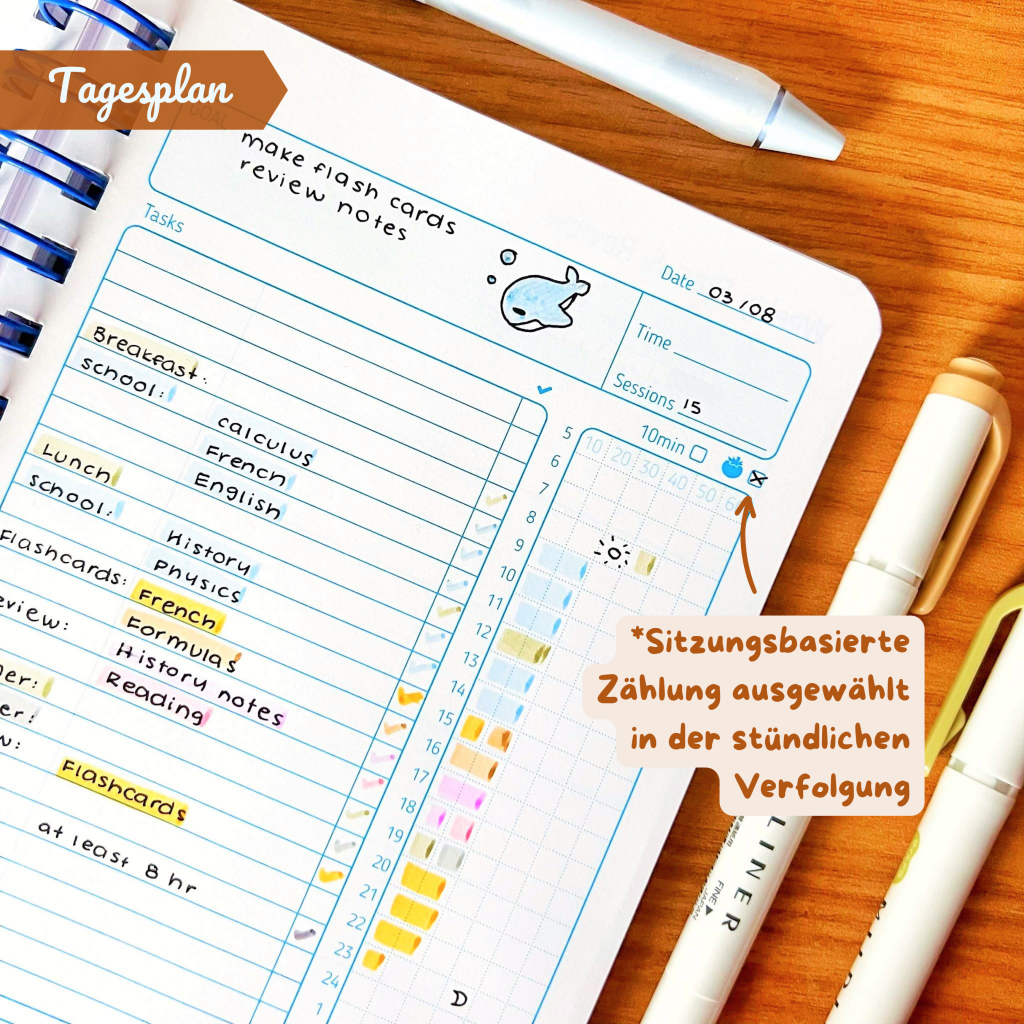 Tagesplan
GOAL
make flash cards
review notes
Date 03/08
Time
Sessions 15
10min
Tasks
10 20 30 40 50 60
Breakfast:
school:
calculus
French
English
Lunch
school:
History
Physics
Flashcards: French
Formulas
History notes
Reading
Flashcards
at least 8 hr
5
6
7
8
9
10
11
12
13
14
15
16
17
18
19
20
21
22
23
24
1
*Sitzungsbasierte
Zählung ausgewählt
in der stündlichen
Verfolgung
LINER
FINE
JAPAN